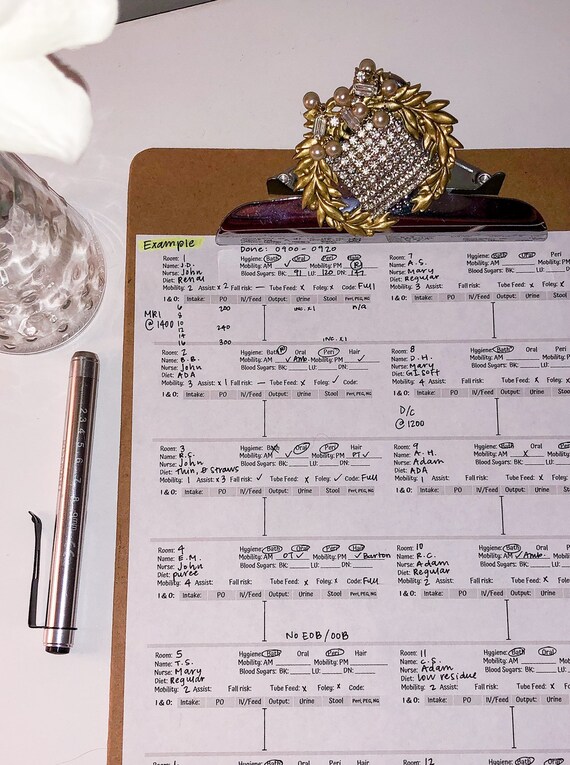 Example
Done: 0900 - 0920
Room: 1 Hygiene: Bath Oral Peri Hair
Name: J.D. Mobility: AM ✓ Mobility: PM R
Nurse: John Blood Sugars: BK: 91 LU: 120 DN: 147
Diet: Renal
Mobility: 2 Assist: x 2 Fall risk: — Tube Feed: x Foley: x Code: Full
I & O: Intake: PO IV/Feed Output: Urine Stool Perf, PEG, NG
6 200 inc. x1 n/a
MRI 8
@ 1400 10
12 240
14
16 300 inc. x1
Room: 2 Hygiene: Bath R Oral Peri Hair
Name: B.B. Mobility: AM ✓ Amb. Mobility: PM ✓
Nurse: John Blood Sugars: BK: LU: DN:
Diet: ADA
Mobility: 3 Assist: x 1 Fall risk: — Tube Feed: x Foley: ✓ Code:
I & O: Intake: PO IV/Feed Output: Urine Stool Perf, PEG, NG
Room: 3 Hygiene: Bath Oral Peri Hair
Name: R.S. Mobility: AM ✓ Mobility: PM PT ✓
Nurse: John Blood Sugars: BK: LU: DN:
Diet: Thin, ø straws
Mobility: 1 Assist: x 3 Fall risk: ✓ Tube Feed: x Foley: ✓ Code: Full
I & O: Intake: PO IV/Feed Output: Urine Stool Perf, PEG, NG
Room: 4 Hygiene: Bath Oral Peri Hair
Name: E.M. Mobility: AM OT ✓ Mobility: PM ✓ Burton
Nurse: John Blood Sugars: BK: LU: DN:
Diet: puree
Mobility: 4 Assist: Fall risk: Tube Feed: x Foley: x Code: Full
I & O: Intake: PO IV/Feed Output: Urine Stool Perf, PEG, NG
NO EOB/OOB
Room: 5 Hygiene: Bath Oral Peri Hair
Name: T.S. Mobility: AM Mobility: PM
Nurse: Mary Blood Sugars: BK: LU: DN:
Diet: Regular
Mobility: 2 Assist: Fall risk: Tube Feed: x Foley: x Code:
I & O: Intake: PO IV/Feed Output: Urine Stool Perf, PEG, NG
Hygiene: Bath Oral Peri Hair
Room: 7 Hygiene: Bath Oral Peri
Name: A.S. Mobility: AM Mobility:
Nurse: Mary Blood Sugars: BK: LU:
Diet: Regular
Mobility: 3 Assist: Fall risk: Tube Feed: x
I & O: Intake: PO IV/Feed Output: Urine
Room: 8 Hygiene: Bath Oral
Name: D.H. Mobility: AM
Nurse: Mary Blood Sugars: BK: LU:
Diet: GI Soft
Mobility: 4 Assist: Fall risk: Tube Feed: x
I & O: Intake: PO IV/Feed Output: Urine
D/C
@ 1200
Room: 9 Hygiene: Bath Oral
Name: A.H. Mobility: AM x
Nurse: Adam Blood Sugars: BK: LU:
Diet: ADA
Mobility: 1 Assist: Fall risk: Tube Feed: x
I & O: Intake: PO IV/Feed Output: Urine
Room: 10 Hygiene: Bath Oral
Name: R.C. Mobility: AM ✓ Amb.
Nurse: Adam Blood Sugars: BK: LU:
Diet: Regular
Mobility: 2 Assist: Fall risk: Tube Feed: x
I & O: Intake: PO IV/Feed Output: Urine
Room: 11 Hygiene: Bath Oral
Name: C.S. Mobility: AM
Nurse: Adam Blood Sugars: BK: LU:
Diet: low residue
Mobility: 2 Assist: Fall risk: Tube Feed: x
I & O: Intake: PO IV/Feed Output: Urine
12 Hygiene: Bath Oral
2 3 4 5 6 7 8